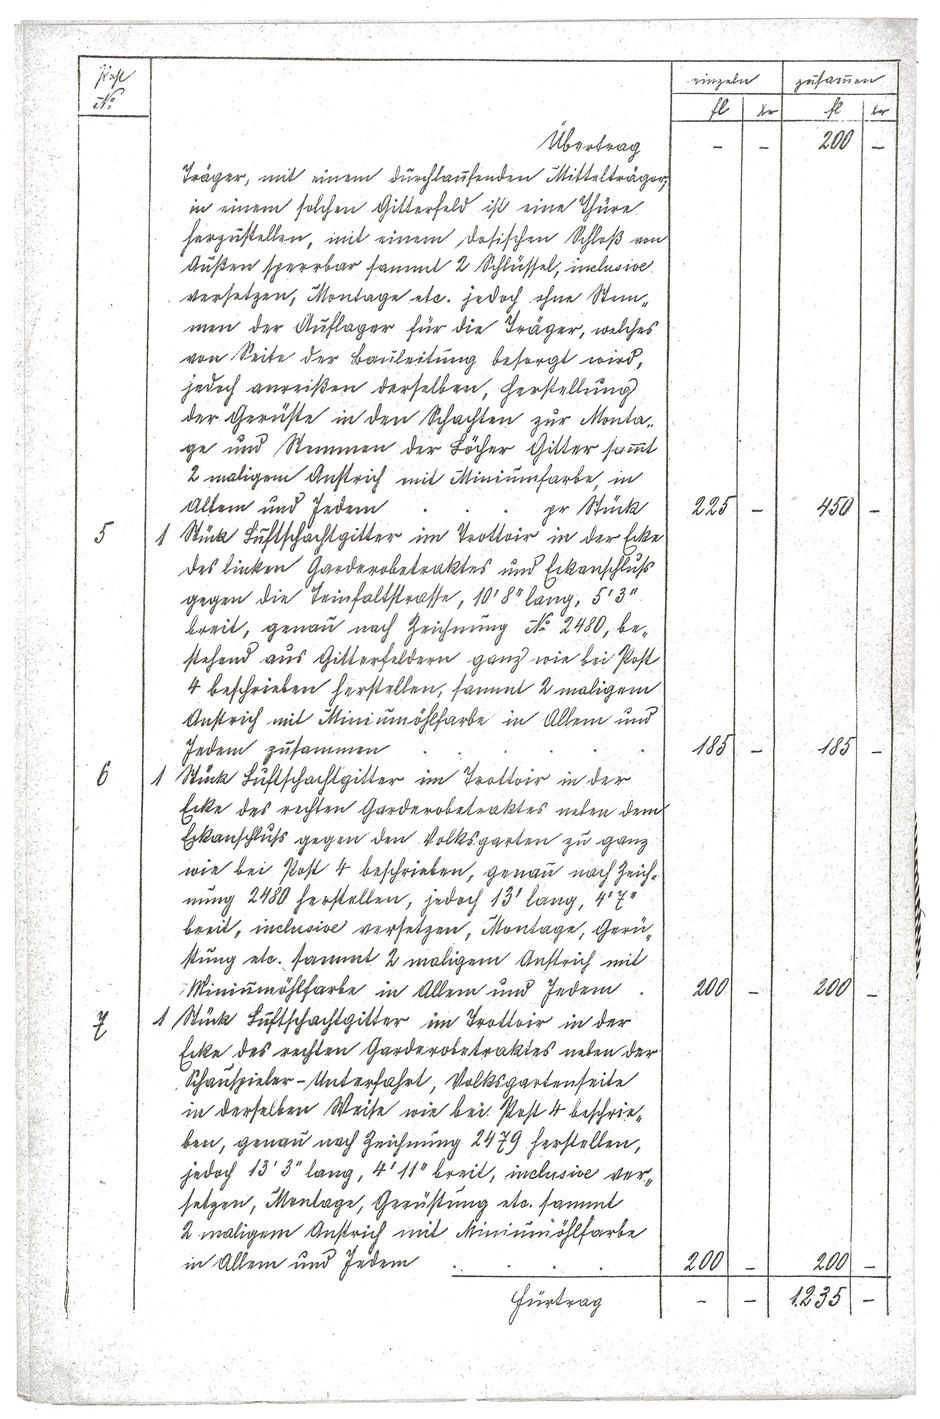 Post einzeln zusammen
No fl kr fl kr
Übertrag - - 200 -
Träger, mit einem durchlaufenden Mittelträger,
in einem solchen Gitterfeld ist eine Thüre
herzustellen, mit einem dosischen Schloß von
Außen sperrbar sammt 2 Schlüssel, inclusive
versetzen, Montage etc. jedoch ohne Stem„
men der Auflager für die Träger, welches
von Seite der Bauleitung besorgt wird,
jedoch anreißen derselben, Herstellung
der Gerüste in den Schachten zur Monta„
ge und Stemmen der Löcher Gitter sam̄t
2 maligem Anstrich mit Miniumfarbe, in
Allem und Jedem . . . pr Stück 225 - 450 -
5 1 Stück Luftschachtgitter im Trottoir in der Ecke
des linken Garderobetraktes und Eckanschluss
gegen die Teinfaltstrasse, 10' 8" lang, 5' 3"
breit, genau nach Zeichnung No 2480, be„
stehend aus Gitterfeldern ganz wie bei Post
4 beschrieben herstellen, sammt 2 maligem
Anstrich mit Miniumöhlfarbe in Allem und
Jedem zusammen . . . . . . 185 - 185 -
6 1 Stück Luftschachtgitter im Trottoir in der
Ecke des rechten Garderobetraktes neben dem
Eckanschluss gegen den Volksgarten zu ganz
wie bei Post 4 beschrieben, genau nach Zeich„
nung 2480 herstellen, jedoch 13' lang, 4' 7"
breit, inclusive versetzen, Montage, Gerü„
stung etc. sammt 2 maligem Anstrich mit
Miniumöhlfarbe in Allem und Jedem . 200 - 200 -
7 1 Stück Luftschachtgitter im Trottoir in der
Ecke des rechten Garderobetraktes neben der
Schauspieler-Unterfahrt, Volksgartenseite
in derselben Weise wie bei Post 4 beschrie„
ben, genau nach Zeichnung 2479 herstellen,
jedoch 13' 3" lang, 4' 11" breit, inclusive ver„
setzen, Montage, Gerüstung etc. sammt
2 maligem Anstrich mit Miniumöhlfarbe
in Allem und Jedem . . . . 200 - 200 -
Fürtrag - - 1.235 -